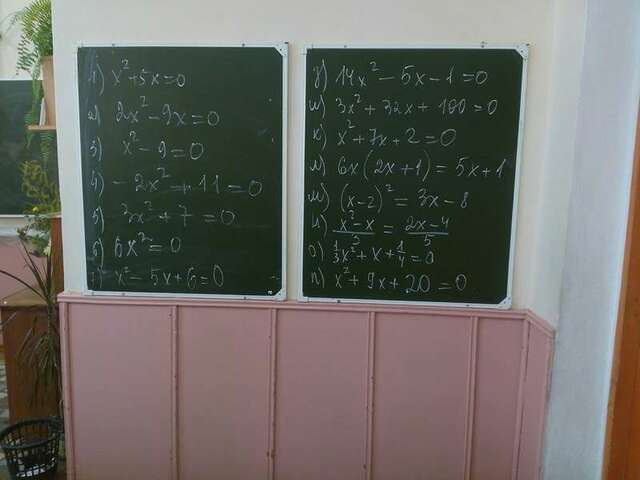 1) x² + 5x = 0
2) 2x² - 9x = 0
3) x² - 9 = 0
4) - 2x² + 11 = 0
5) 3x² + 7 = 0
6) 6x² = 0
7) x² - 5x + 6 = 0
з) 14x² - 5x - 1 = 0
и) 3x² + 32x + 100 = 0
к) x² + 7x + 2 = 0
л) 6x(2x + 1) = 5x + 1
м) (x - 2)² = 3x - 8
н) (x² - x)/3 = (2x - 4)/5
о) 1/3x² + x + 1/4 = 0
п) x² + 9x + 20 = 0